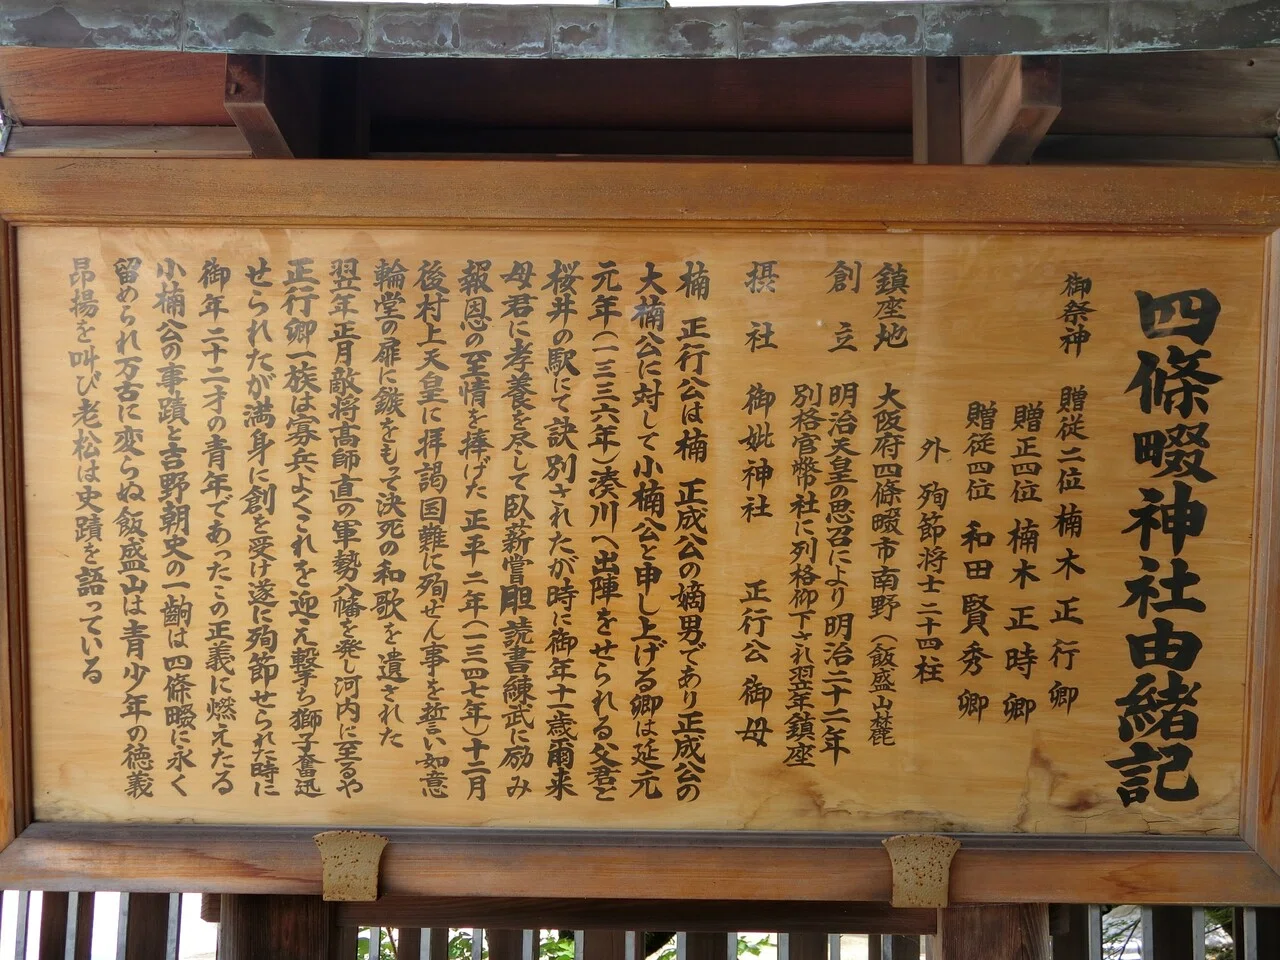 四條畷神社由緒記
御祭神 贈従二位楠木正行卿
贈正四位 楠木正時卿
贈従四位 和田賢秀卿
外 殉節将士二十四柱
鎮座地 大阪府四條畷市南野（飯盛山麓）
創立 明治天皇の思召により明治二十二年
別格官幣社に列格仰下され翌年鎮座
摂社 御妣神社 正行公御母
楠 正行公は楠 正成公の嫡男であり正成公の
大楠公に対して小楠公と申し上げる卿は延元
元年（一三三六年）湊川へ出陣をせられる父君と
桜井の駅にて訣別されたが時に御年十一歳爾来
母君に孝養を尽して臥薪嘗胆読書練武に励み
報恩の至情を捧げた 正平二年（一三四七年）十二月
後村上天皇に拝謁国難に殉せん事を誓い如意
輪堂の扉に鏃をもて決死の和歌を遺された
翌年正月敵将高師直の軍勢八幡を発し河内に至るや
正行卿一族は寡兵よくこれを迎え撃ち獅子奮迅
せられたが満身に創を受け遂に殉節せられた時に
御年二十二才の青年であったこの正義に燃えたる
小楠公の事蹟と吉野朝史の一齣は四條畷に永く
留められ万古に変らぬ飯盛山は青少年の徳義
昂揚を叫び老松は史蹟を語っている